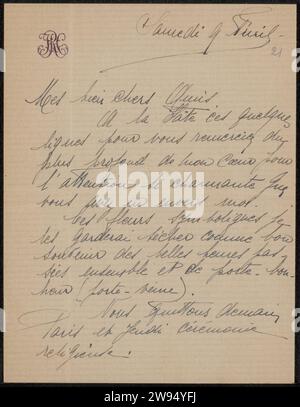 Samedi 9 Avril
21
Mes bien chers Amis
A la hâte ces quelques
lignes pour vous remercier du
plus profond de mon Cœur pour
l'attention si charmante que
vous
Ces fleurs symboliques je
les garderai sèches comme bon
souvenir des belles heures pas
sées ensemble et de porte-bon-
heur (porte-veine).
Nous quittons demain
Paris et Jeudi cérémonie
religieuse.
alamy
Image ID: 2W94YFJ
www.alamy.com